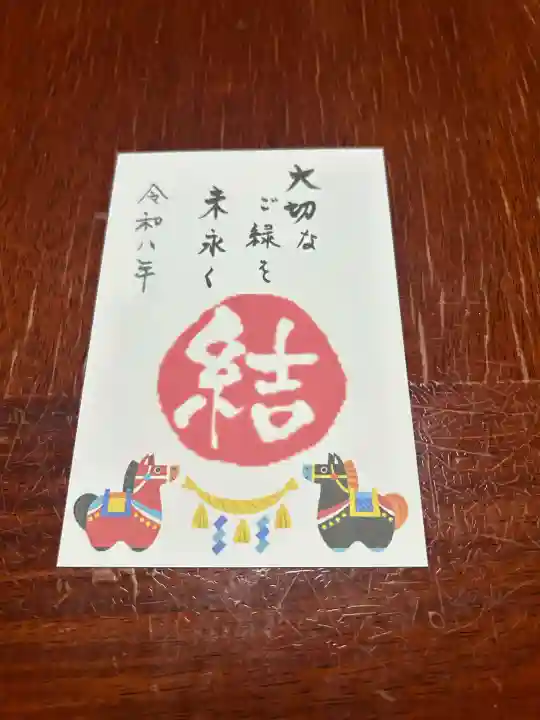 大切な
ご縁を
末永く
令和八年
結